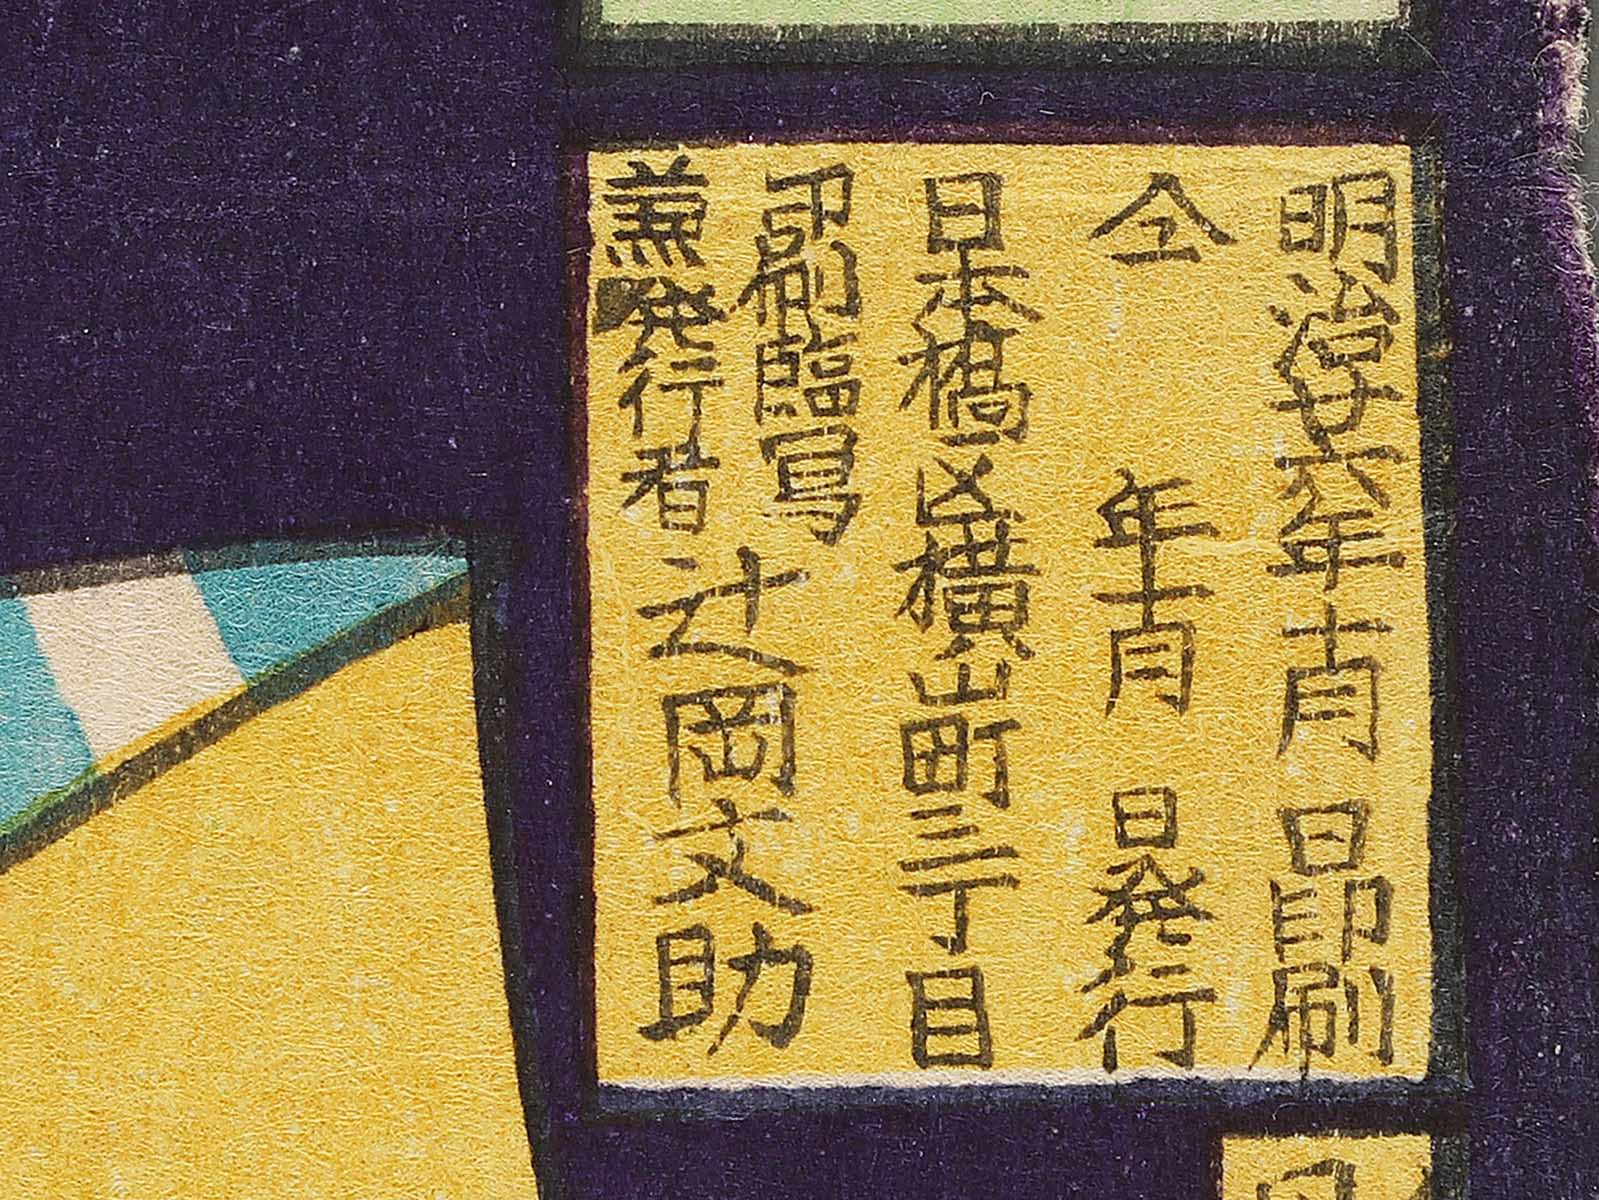 明治廿六年十月　日印刷
仝　年十月　日発行
日本橋区横山町三丁目
印刷臨写
兼発行者
辻岡文助